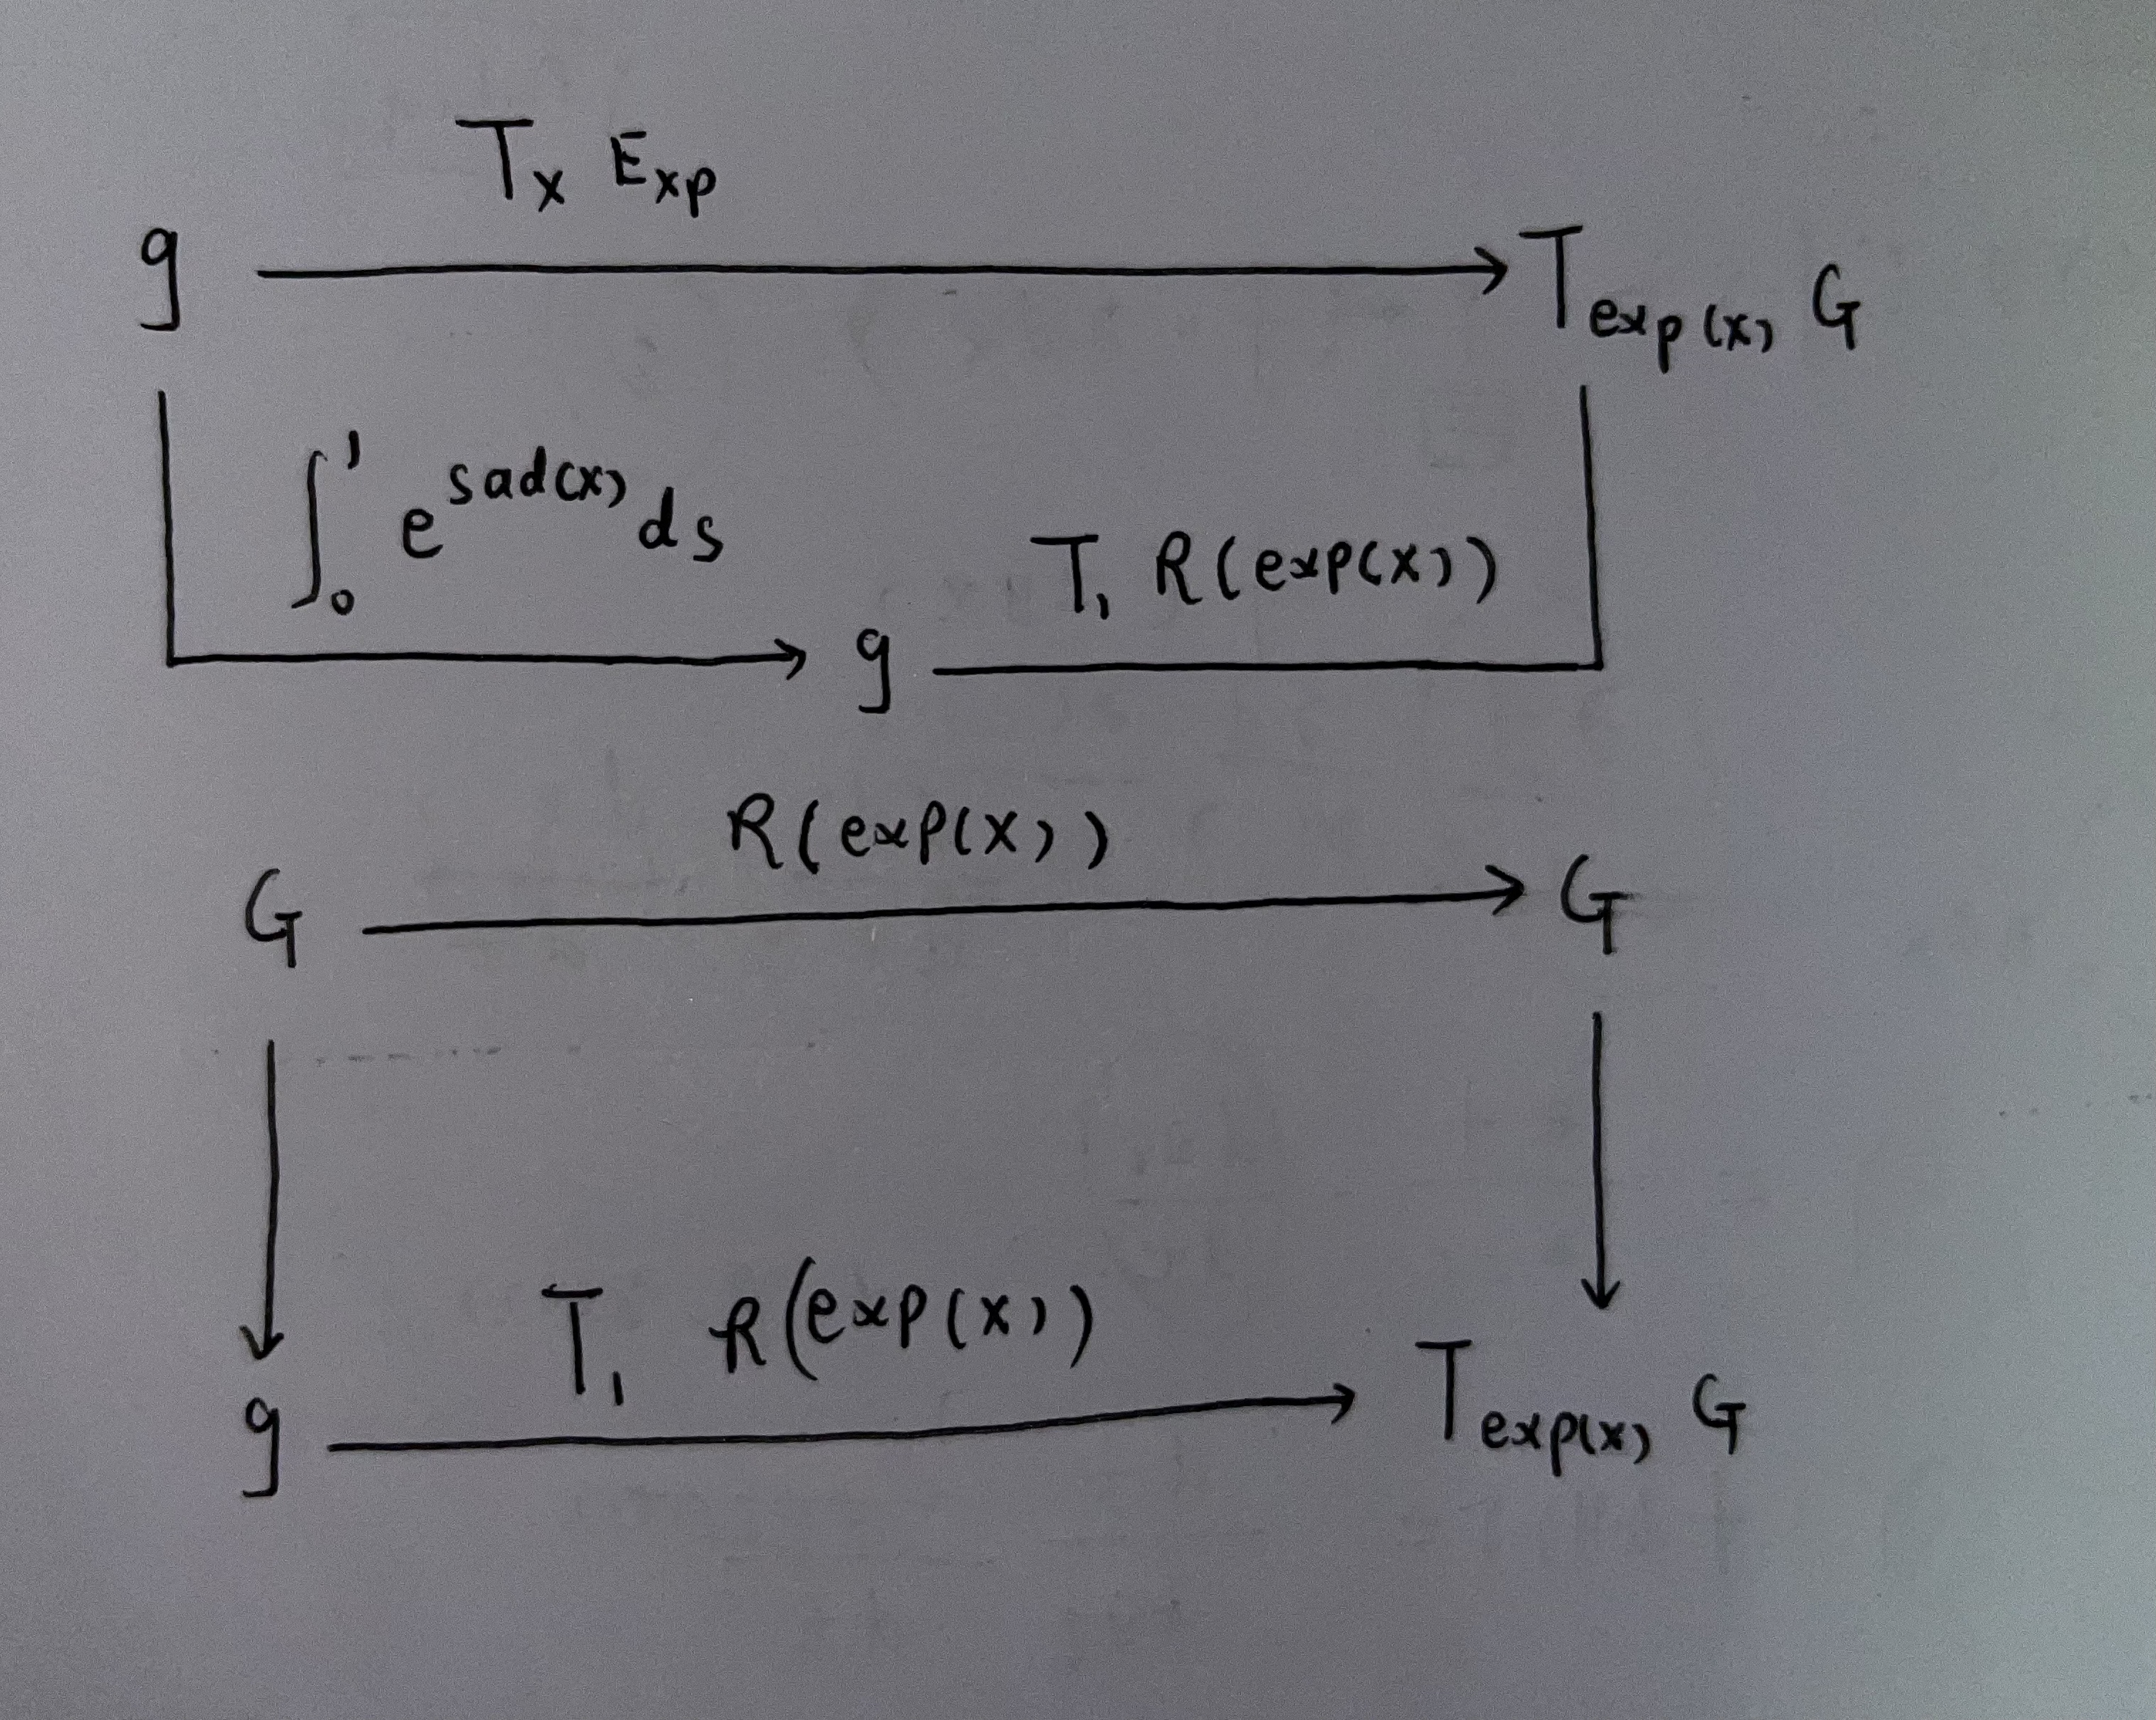 T_x Exp
g T_exp(x) G
∫_0^1 e^sad(x) ds
T_1 R(exp(x))
g
R(exp(x))
G G
T_1 R(exp(x))
g T_exp(x) G